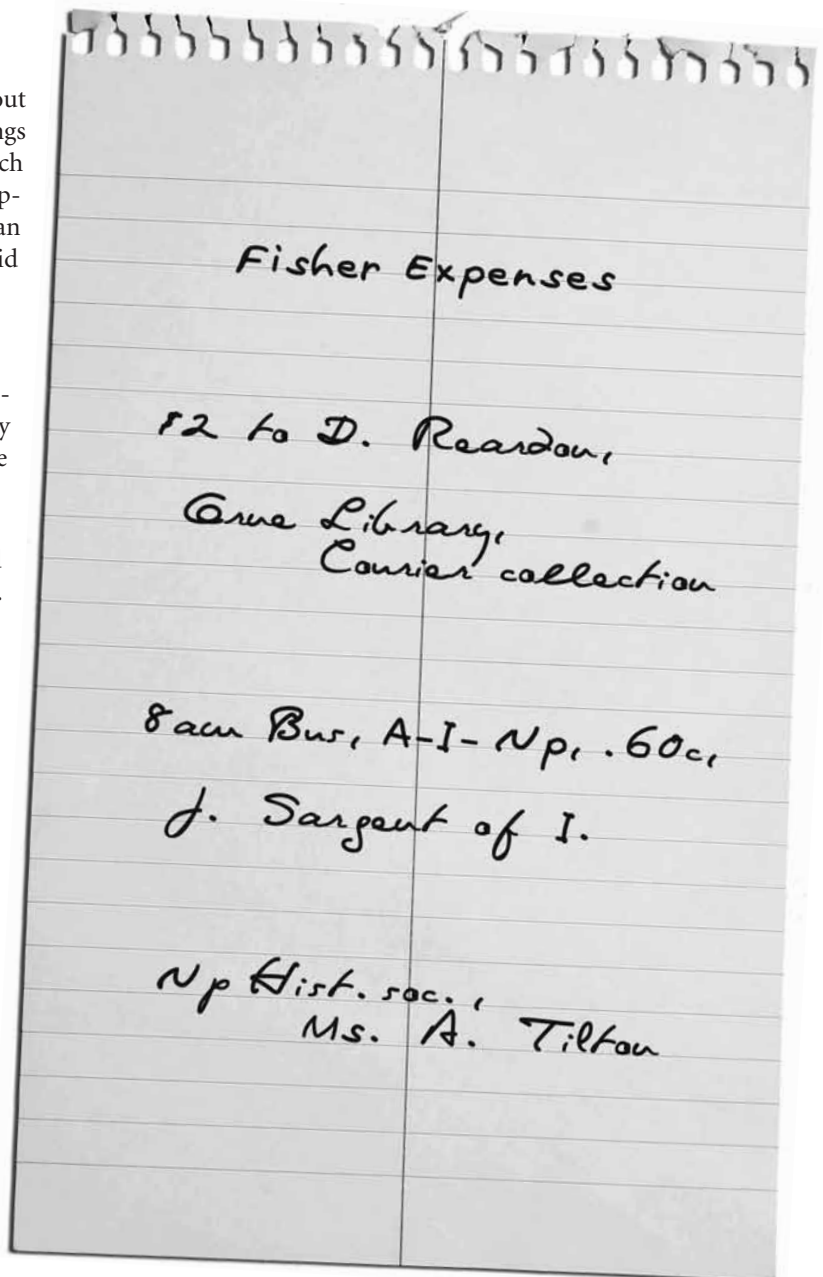 out
ngs
ch
p-
an
id
-
y
e
Fisher Expenses
$2 to D. Reardon,
Orne Library,
Courier collection
8am Bus, A-I-Np, .60c,
J. Sargent of I.
Np Hist. soc.,
Ms. A. Tilton